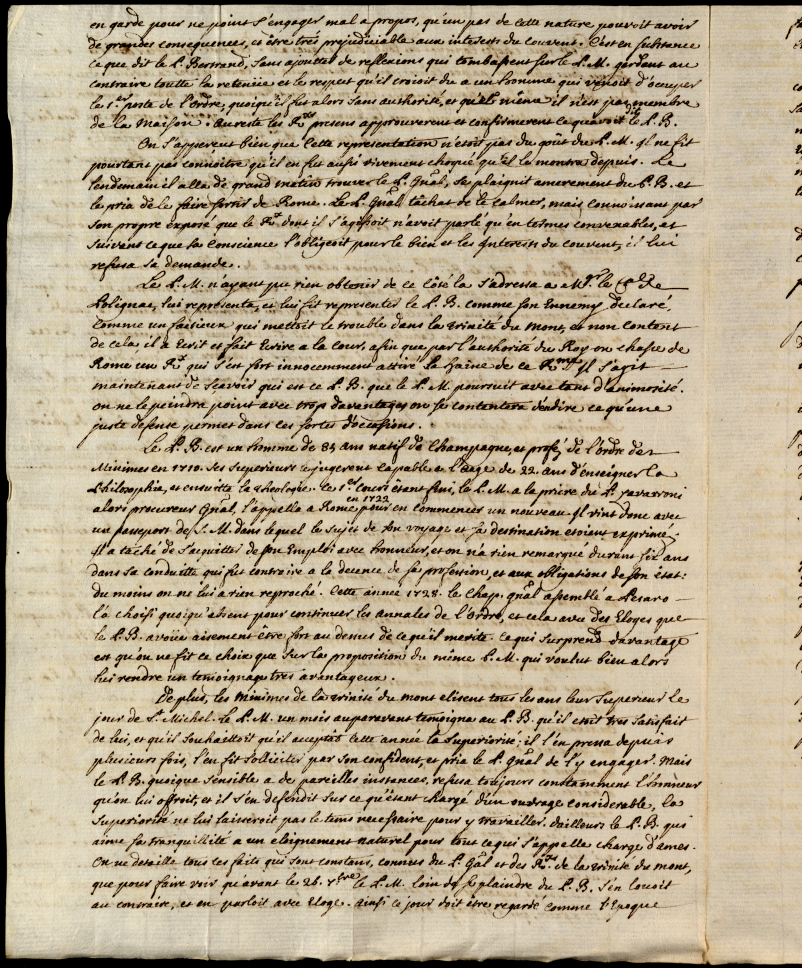 en garde pour ne point s'engager mal a propos, qu'un pas de cette nature pouvoit avoir
de grandes consequences, et être trés prejudiciable aux interests du couvent. C'est en substance
ce que dit le P. Bertrand, sans ajouter de reflexions qui tombassent sur le P. M. gardant au
contraire toutte la retenüe et le respect qu'il croioit du a un homme qui venoit d'occuper
le 1.er poste de l'Ordre, quoiqu'il fut alors sans authorité, et qu'al même il n'est pas membre
de la Maison. Au reste les R.x presens approuverent et confirmerent ce qu'avoit dit le P. B.
On s'apperceut bien que cette representation n'etoit pas du goût du P. M. Il ne fit
pourtant pas connoitre qu'il en fut aussi vivement choqué qu'il le montra depuis. Le
lendemain il alla de grand matin trouver le P. Gnãl, se plaignit amerement du P. B. et
le pria de le faire sortir de Rome. Le P. Gnãl tâchat de le calmer, mais connoissant par
son propre exposé que le R.x dont il s'agissoit n'avoit parlé qu'en termes convenables, et
suivant ce que sa Conscience l'obligeoit pour le bien et les Interests du couvent, il lui
refusa sa demande.
Le P. M. n'ayant pu rien obtenir de ce côté là s'adressa a M.gr le C.al De
Polignac, lui representa, et lui fit representer le P. B. comme son Ennemy declaré,
comme un factieux qui mettoit le trouble dans la trinité du Mont, et non content
de cela il a Ecrit et fait Ecrire a la cour, afin que par l'authorité du Roy on chasse de
Rome un R.x qui s'est fort innocemment attiré la haine de ce R.me Il s'agit
maintenant de scavoir qui est ce P. B. que le P. M. poursuit avec tant d'animosité.
on ne le peindra point avec trop d'avantages on se contentera d'en dire ce qu'une
juste defense permet dans ces sortes d'occasions.
Le P. B. est un homme de 35 ans natif de Champagne, et profez de l'ordre des
Minimes en 1710. Ses Superieurs le jugerent capable a l'age de 22. ans d'enseigner la
Philosophie, et ensuitte la theologie. le 1.er cours étant fini, le P. M. a la priere du P. Zavarroni
alors procureur Gnãl, l'appella a Rome en 1722 pour en commencer un nouveau. Il vint donc avec
un passeport de S. M. dans lequel le sujet de son voyage et sa destination etoient exprimé.
Il a tâché de s'acquitter de son Employ avec honneur, et on n'a rien remarqué durant six ans
dans sa conduitte qui fut contraire a la decence de sa profession, et aux obligations de son état:
du moins on ne lui a rien reproché. Cette année 1728. le chap. gnãl assemblé a Pesaro
l'a choisi quoiqu'absent pour continuer les annales de l'ordre, et cela avec des Eloges que
le P. B. avoüe aisement être fort au dessus de ce qu'il merite. ce qui surprend davantage
est qu'on ne fit ce choix que sur la proposition du même P. M. qui voulut bien alors
lui rendre un temoignage trés avantageux.
De plus, les Minimes de la trinité du mont elisent tous les ans leur Superieur le
jour de S.t Michel. le P. M. un mois auparevant temoigna au P. B. qu'il etoit tres satisfait
de lui, et qu'il souhaittoit qu'il acceptat cette année la Superiorité; il l'en pressa depuis
plusieurs fois, l'en fit solliciter par son confident, et pria le P. Gnãl de l'y engager. Mais
le P. B. quoique sensible a de pareilles instances, refusa toujours constamment l'honneur
qu'on lui offroit, et il s'en defendit sur ce qu'étant chargé d'un ouvrage considerable, la
Superiorité ne lui laisseroit pas le tems necessaire pour y travailler. d'ailleurs le P. B. qui
aime sa tranquillité a un eloignement naturel pour tout ce qui s'appelle charge d'ames.
On ne detaille tous les faits qui sont constans, connus du P. Gãl et des R.x de la trinité du mont,
que pour faire voir qu'avant le 26. 7.bre le P. M. loin de se plaindre du P. B. s'en louoit
au contraire, et en parloit avec Eloge. ainsi ce jour doit être regardé comme l'Epoque